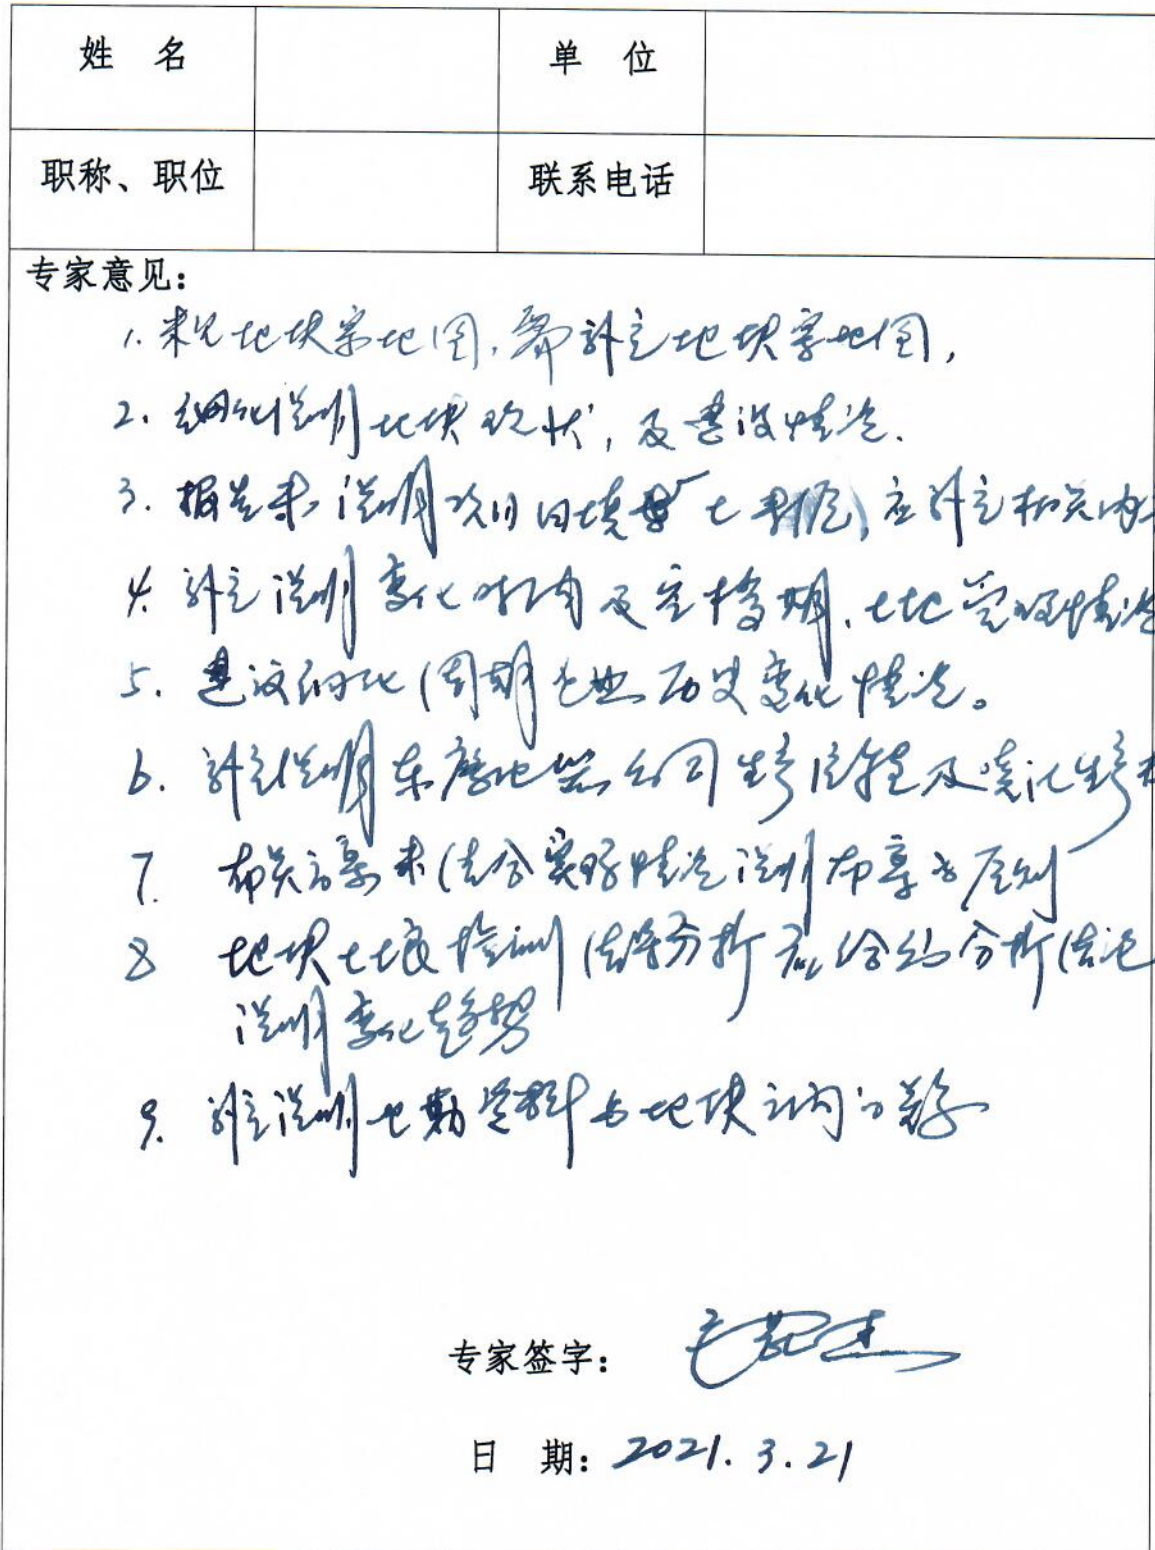 姓 名
单 位
职称、职位
联系电话
专家意见:
1.未见地块宗地图,需补充地块宗地图,
2.细化说明地块现状,及建设情况.
3.报告未说明项目回填土情况,应补充相关内
4.补充说明变化时间及,土地情况
5.建议细化周期企业历史变化情况。
6.补充说明东公司生产及生产
7.布点方案未结合实际情况说明布点原则
8 地块土壤检测结果分析应给出分析结论
说明变化趋势
9.补充说明地勘资料与地块之间的关系
专家签字:
日 期:2021.3.21